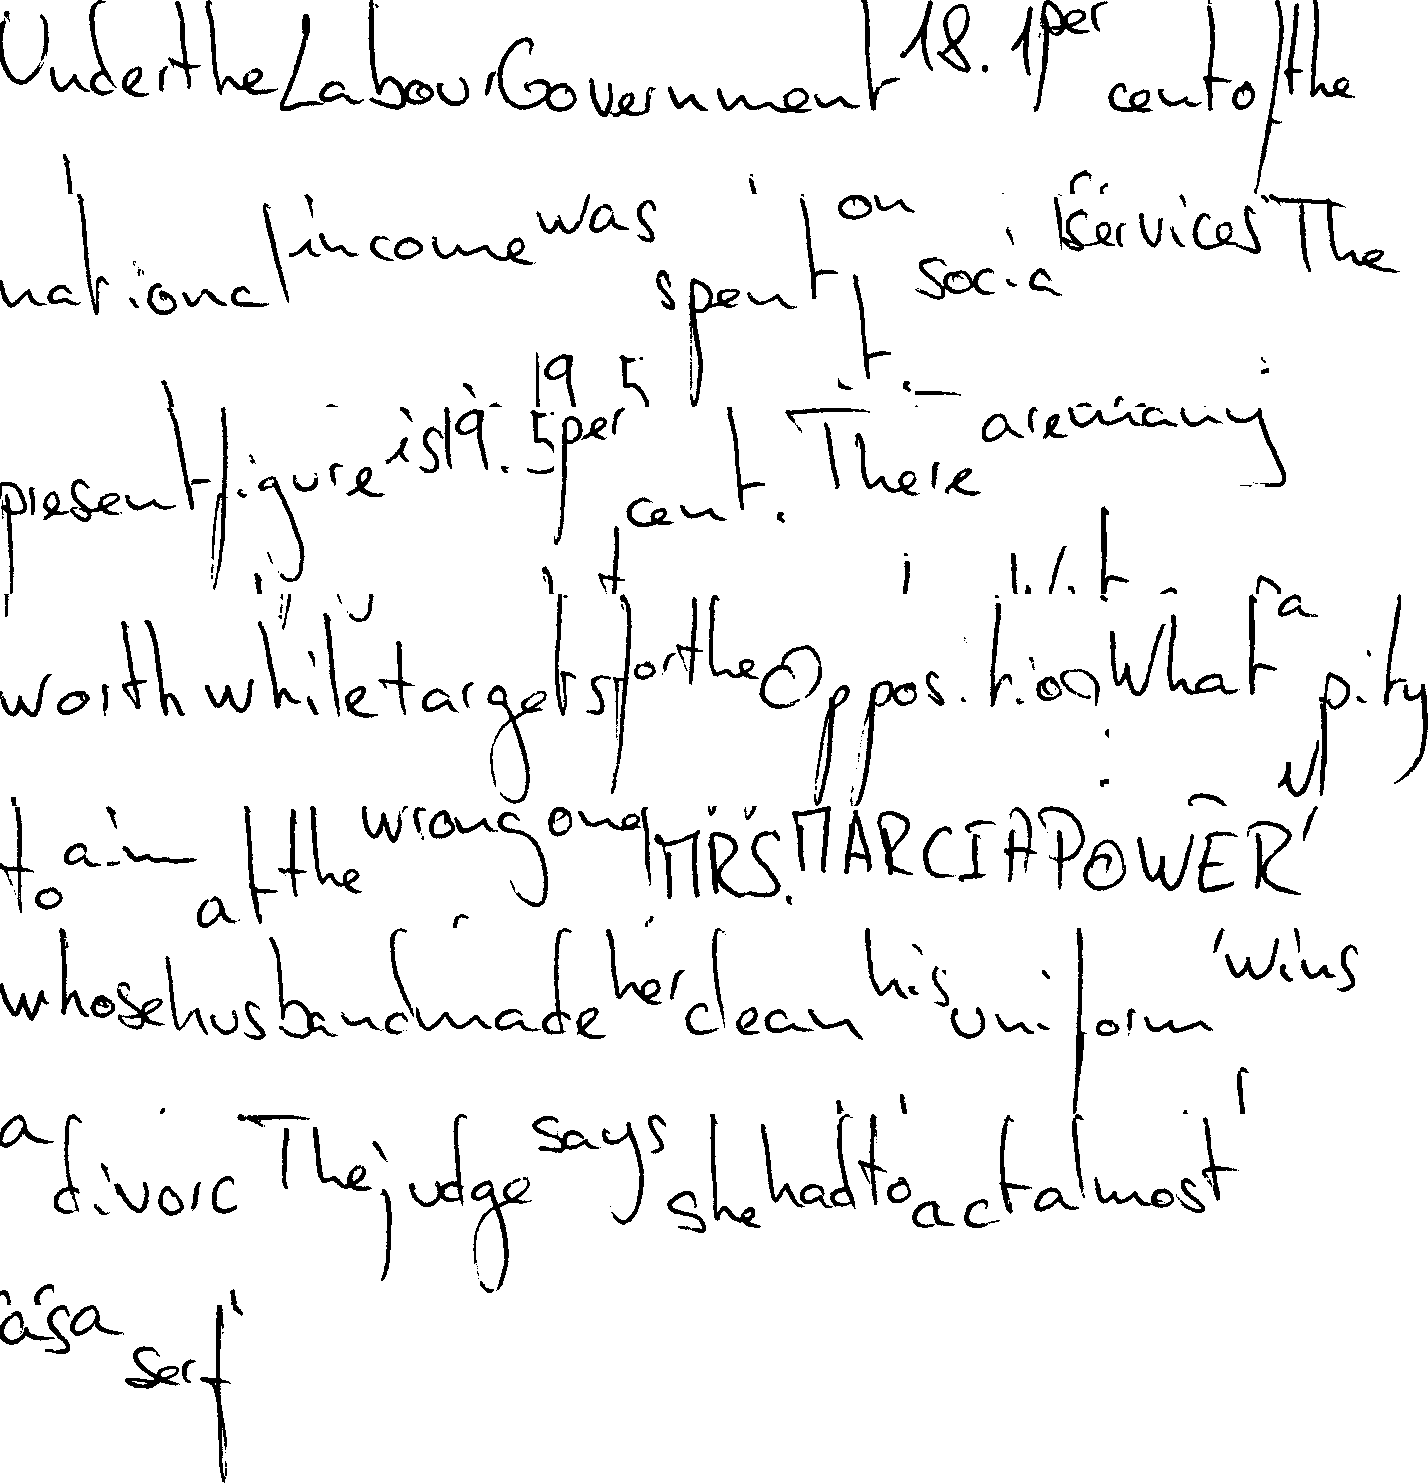 Under the Labour Government 18.1 per cent of the
national income was spent on social services The
present figure is 19.5 per cent. There are many
worthwhile targets for the Opposition What a pity
to aim at the wrong one MRS. MARCIA POWER
whose husband made her clean his uniform wins
a divorc The judge says she had to act almost
as a serf